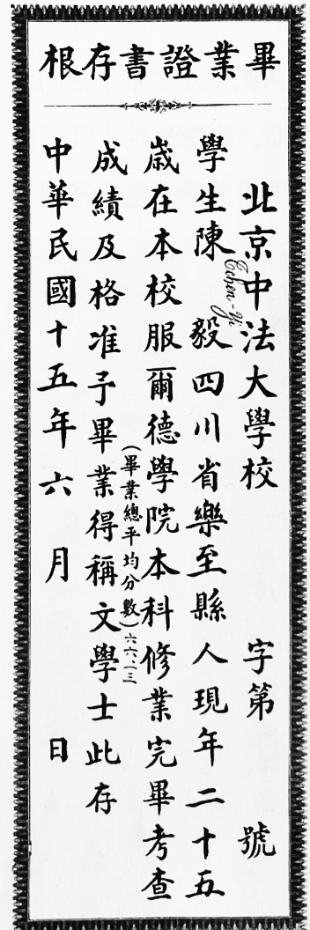 畢業證書存根
北京中法大學校　字第　號
學生陳毅四川省樂至縣人現年二十五
Tchen-Yi
歲在本校服爾德學院本科修業完畢考查
(畢業總平均分數)六六、一三
成績及格准予畢業得稱文學士此存
中華民國十五年六月　日